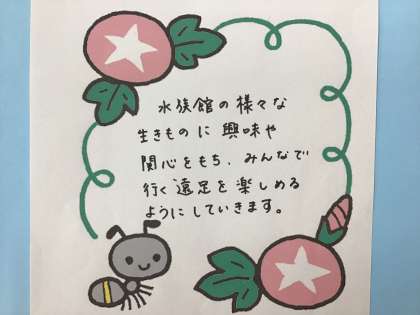 水族館の様々な
生きものに興味や
関心をもち、みんなで
行く遠足を楽しめる
ようにしていきます。